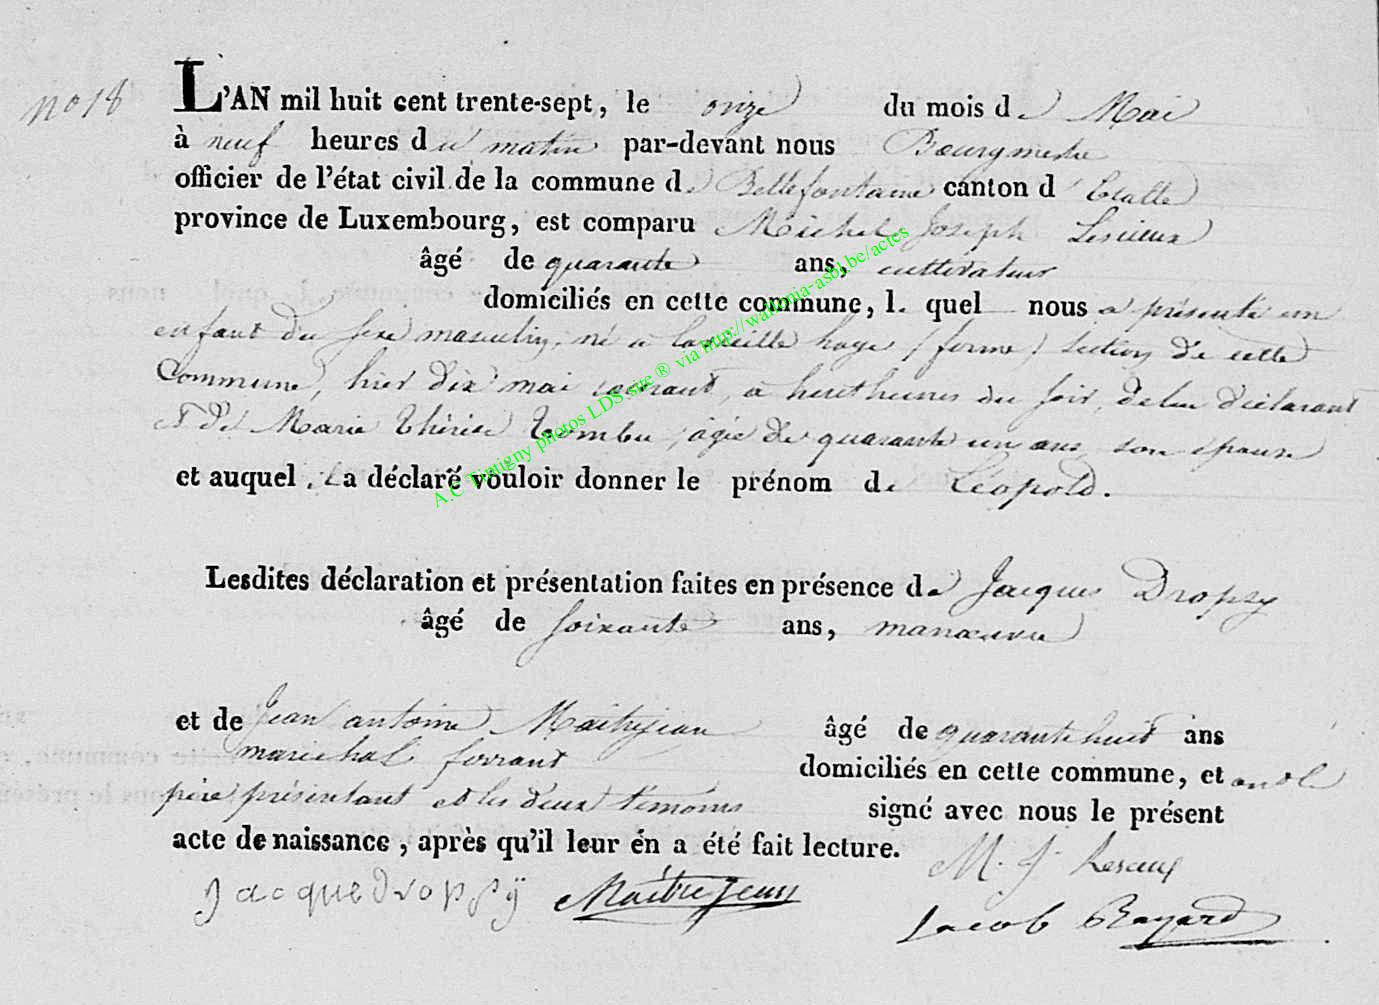 no 18
L'AN mil huit cent trente-sept, le onze du mois de Mai
à neuf heures du matin par-devant nous Bourgmestre
officier de l'état civil de la commune de Bellefontaine canton d'Etalle
province de Luxembourg, est comparu Michel Joseph Lesieux
âgé de quarante ans, cultivateur
domiciliés en cette commune, l. quel nous a présenté un
enfant du sexe masculin, né à la vieille haye (ferme) section de cette
Commune, hier dix mai courant, a huit heures du soir, de lui déclarant
et de Marie Thérèse Lombu, agée de quarante un ans, son épouse
et auquel il a déclaré vouloir donner le prénom de Léopold.
Lesdites déclaration et présentation faites en présence de Jacques Dropsy
âgé de soixante ans, manœuvre
et de Jean antoine Maitrejean âgé de quarante huit ans
marechal ferrant domiciliés en cette commune, et ont le
père présentant et les deux témoins signé avec nous le présent
acte de naissance, après qu'il leur en a été fait lecture.
M. J. Lesieux
Jacque dropsÿ Maitrejean
Jacob Bayard
A.C Tintigny photos LDS.site ® via http://wallonia-asbl.be/actes